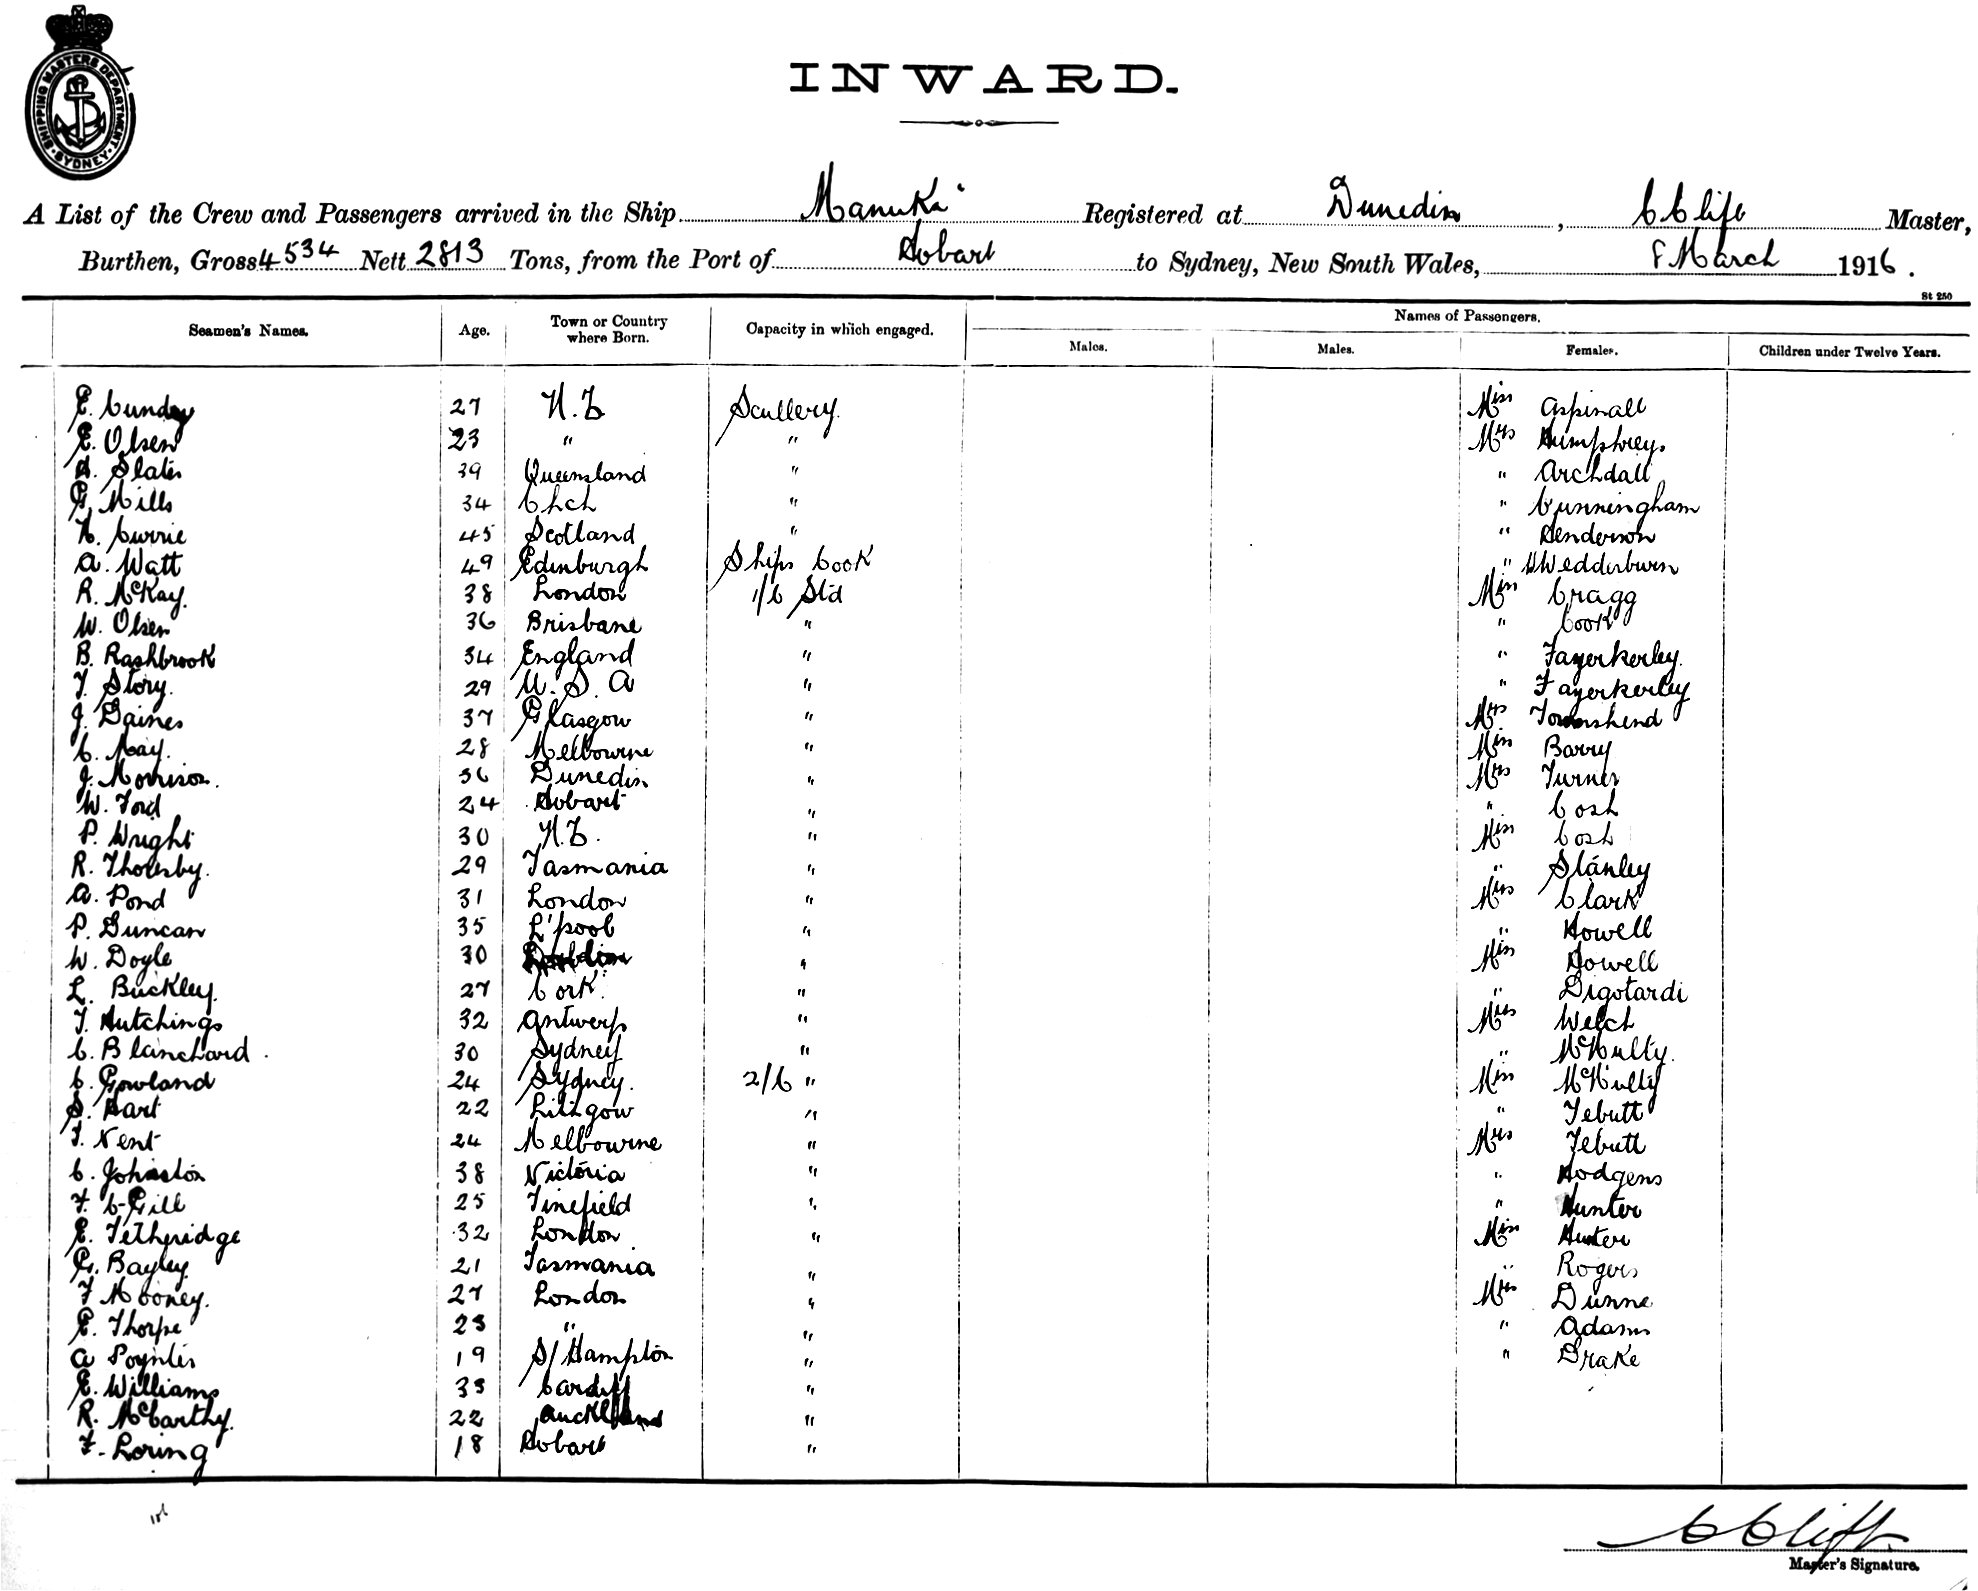 SHIPPING MASTERS DEPARTMENT
SYDNEY
INWARD.
A List of the Crew and Passengers arrived in the Ship Manuka Registered at Dunedin, C Clift Master,
Burthen, Gross 4534 Nett 2813 Tons, from the Port of Hobart to Sydney, New South Wales, 8 March 1916.
St 250
Seamen's Names. Age. Town or Country where Born. Capacity in which engaged. Names of Passengers.
Males. Males. Females. Children under Twelve Years.
E. Cunday 27 N.Z Scullery. Miss Aspinall
E. Olsen 23 " " Mrs Humphreys
H. Slater 39 Queensland " " Archdall
G. Mills 34 Chch " " Cunningham
H. Currie 45 Scotland " " Henderson
A. Watt 49 Edinburgh Ships Cook " Wedderburn
R. McKay. 38 London 1/C Std Miss Cragg
W. Olsen 36 Brisbane " " Cook
B. Rashbrook 34 England " " Fayerkerley.
T. Story. 29 U.S.A " " Fayerkerley
J. Gaines 37 Glasgow " Mrs Townshend
C. May. 28 Melbourne " Miss Barry
J. Morrison. 36 Dunedin " Mrs Turner
W. Ford 24 Hobart " " Cosh
P. Wright 30 N.Z. " Miss Cosh
R. Thoresby. 29 Tasmania " " Stanley
A. Pond 31 London " Mrs Clark
P. Duncan 35 L'pool " " Howell
W. Doyle 30 Dublin " Miss Howell
L. Buckley. 27 Cork. " " Digotardi
T. Hutchings 32 Antwerp " Mrs Welch
C. Blanchard. 30 Sydney " " McNulty.
C. Gowland 24 Sydney. 2/C " Miss McNulty
S. Hart 22 Lithgow " " Tebutt
T. Nent 24 Melbourne " Mrs Tebutt
C. Johnston 38 Victoria " " Hodgens
F. C. Gill 25 Tinefield " " Hunter
E. Tetheridge 32 London " Miss Hunter
G. Bayley 21 Tasmania " " Rogers
F Mooney. 27 London " Mrs Dunne
E. Thorpe 23 " " " Adams
A Poynter 19 S/Hampton " " Drake
E. Williams 33 Cardiff "
R. McCarthy. 22 Auckland "
F. Loring 18 Hobart "
C Clift.
Master's Signature.